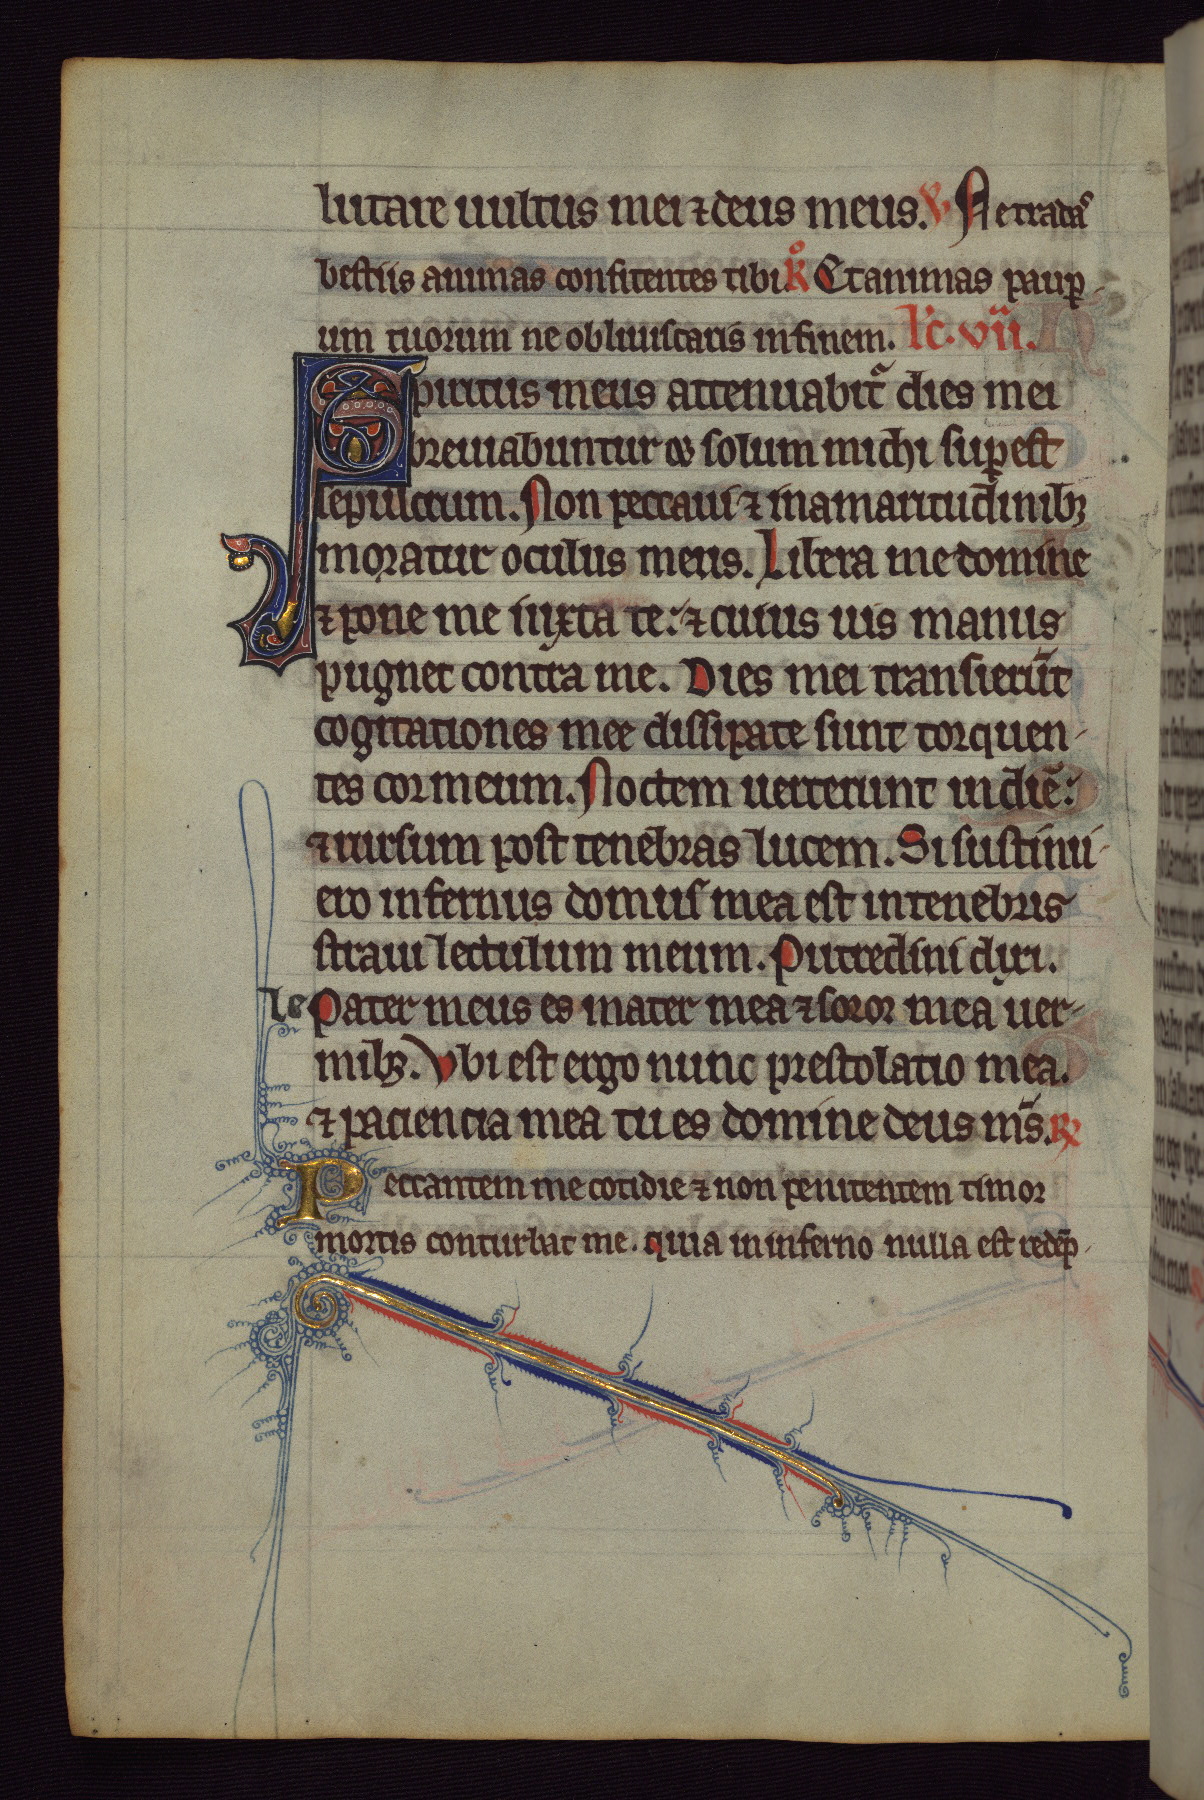 lutare uultus mei ⁊ deus meus. V. Ne tradas
bestiis animas confitentes tibi R̊ Et animas paup
um tuorum ne obliuiscaris in finem. Lc̄. vii.
Spiritus meus attenuabit᷑ dies mei
breuiabuntur ⁊ solum michi sup̱est
sepulcrum. Non peccaui ⁊ in amaritudinibꝫ
moratur oculus meus. Libera me domine
⁊ pone me iuxta te: ⁊ cuius uis manus
pugnet contra me. Dies mei transierūt
cogitationes mee dissipate sunt torquen-
tes cor meum. Noctem uerterunt in diē:
⁊ rursum post tenebras lucem. Si sustinu-
ero infernus domus mea est in tenebris
straui lectulum meum. Putredini dixi.
Pater meus es mater mea ⁊ soror mea uer-
mibꝫ. Vbi est ergo nunc prestolatio mea.
⁊ paciencia mea tu es domine deus ms̄. ℞
Peccantem me cotidie ⁊ non penitentem timor
mortis conturbat me. quia in inferno nulla est redēp-